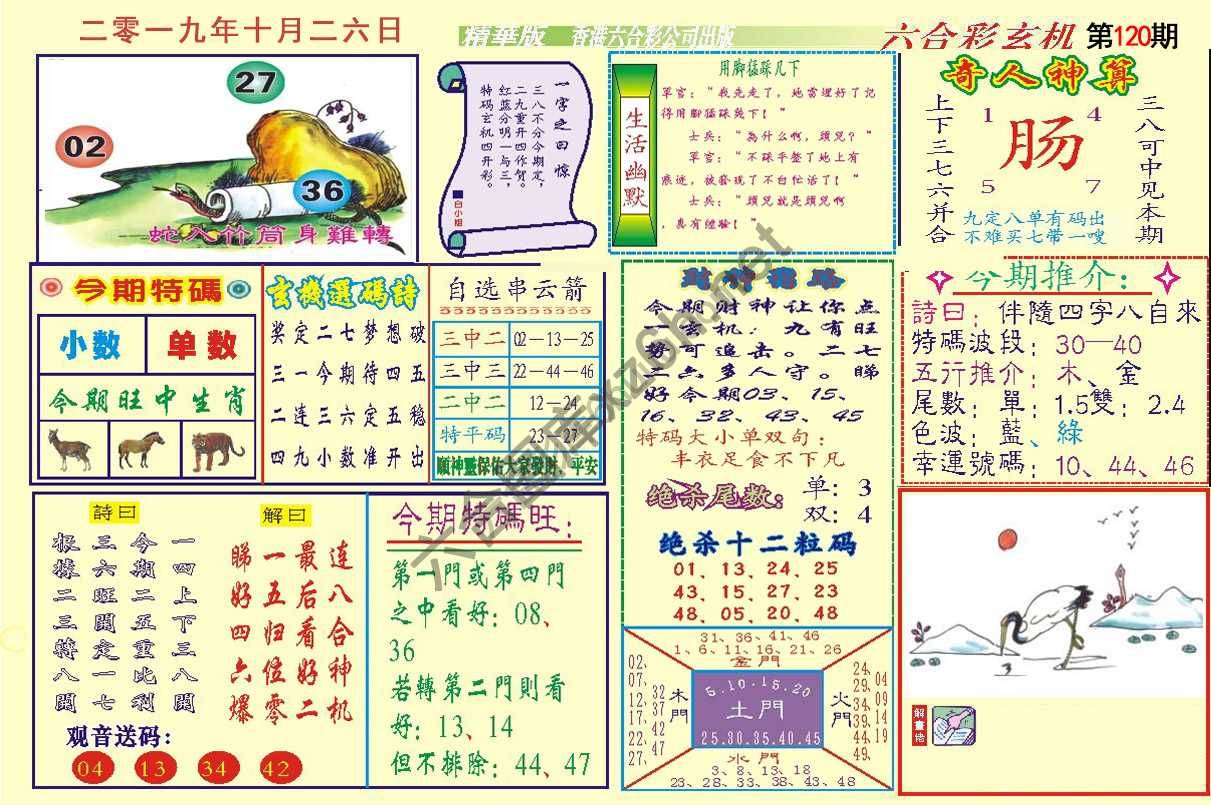 二零一九年十月二六日
精華版 香港六合彩公司出版
六合彩玄机 第120期
27
02
36
蛇入竹筒身難轉
一字之曰惊
三八不分今期定，
二九重开四作贺。
红蓝分明一与三，
特码玄机四开彩。
白小姐
生活幽默
用脚猛踩几下
軍官：“我先走了，地雷埋好了记
得用腳猛踩幾下！”
士兵：“為什么啊，頭兒？”
軍官：“不踩平整了地上有
痕迹，被發現了不白忙活了！”
士兵：“頭兒就是頭兒啊
，真有經驗！”
奇人神算
上下三七六并合
1
4
肠
5
7
三八可中见本期
九定八单有码出
不难买七带一嗖
今期特碼
小数
单数
今期旺中生肖
玄機選碼詩
奖定二七梦想破
三一今期待四五
二连三六定五稳
四九小数准开出
自选串云箭
三中二 02—13—25
三中三 22—44—46
二中二 12—24
特平码 23—27
願神靈保佑大家發財、平安
今期财神让你点
一玄机：九有旺
势可追击。二七
二点多人守。睇
好今期03、15、
16、32、43、45
特码大小单双句：
丰衣足食不下凡
绝杀尾数：
单：3
双：4
绝杀十二粒码
01、13、24、25
43、15、27、23
48、05、20、48
今期推介：
詩曰：伴隨四字八自來
特碼波段：30—40
五行推介：木、金
尾數：單：1.5雙：2.4
色波：藍、綠
幸運號碼：10、44、46
詩曰
一四上下三八開
今期二五重比利
三六旺開定一七
根據二三轉八開
解曰
连八合神机
最后看好二
一五归位零
睇好四六爆
观音送码：
04 13 34 42
今期特碼旺：
第一門或第四門
之中看好：08、
36
若轉第二門則看
好：13、14
但不排除：44、47
31、36、41、46
1、6、11、16、21、26
金門
02、07、12、17、22、27、
32、37、42、47
木門
5.10.15.20
土門
25.30.35.40.45
火門
24、29、34、39、44、49、
04、09、14、19
水門
3、8、13、18
23、28、33、38、43、48
解畫佬
六合图库xz6ho.net